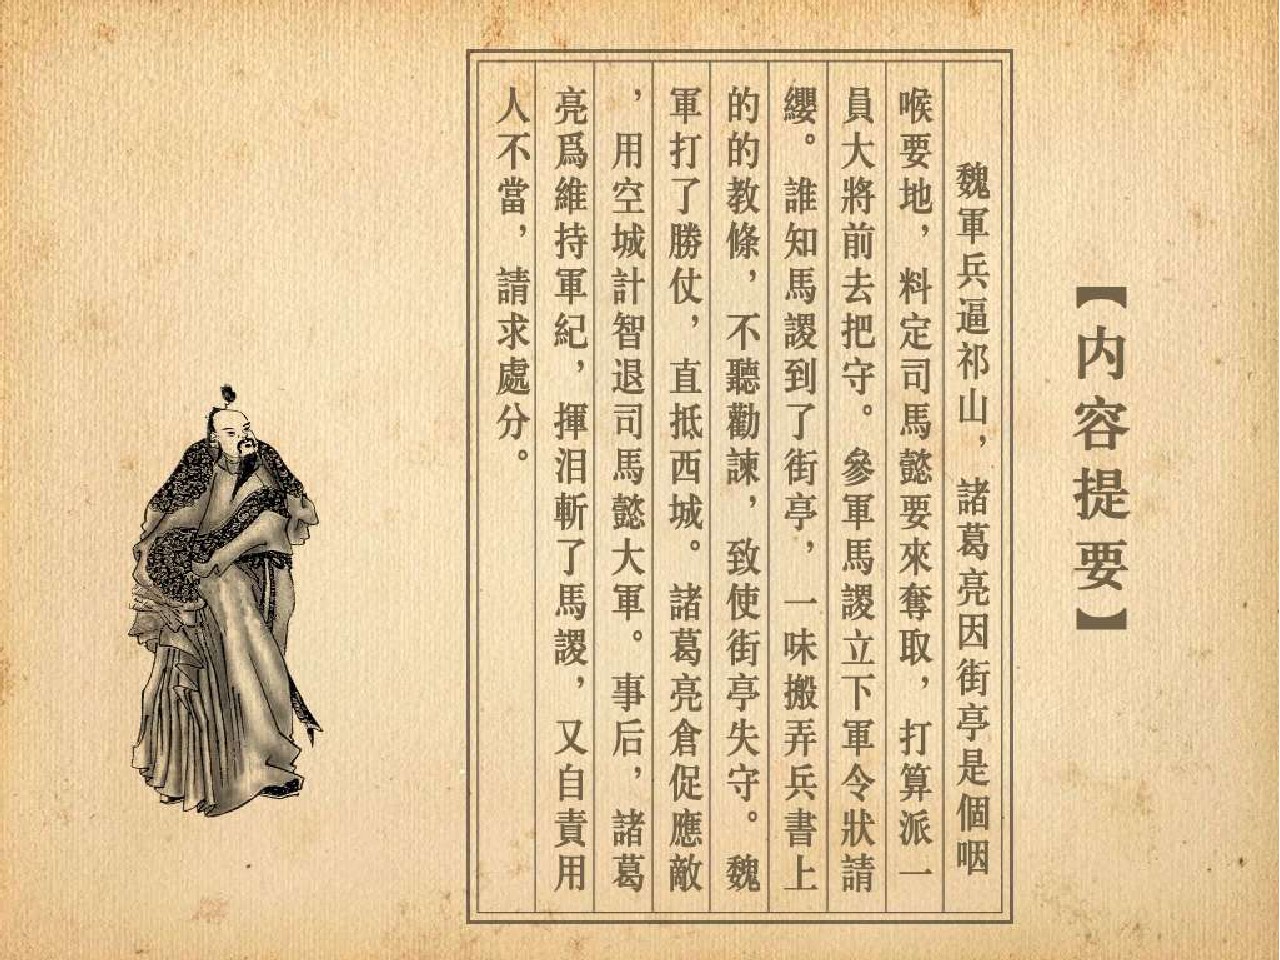 【内容提要】
魏軍兵逼祁山，諸葛亮因街亭是個咽
喉要地，料定司馬懿要來奪取，打算派一
員大將前去把守。參軍馬謖立下軍令狀請
纓。誰知馬謖到了街亭，一味搬弄兵書上
的的教條，不聽勸諫，致使街亭失守。魏
軍打了勝仗，直抵西城。諸葛亮倉促應敵
，用空城計智退司馬懿大軍。事后，諸葛
亮爲維持軍紀，揮泪斬了馬謖，又自責用
人不當，請求處分。